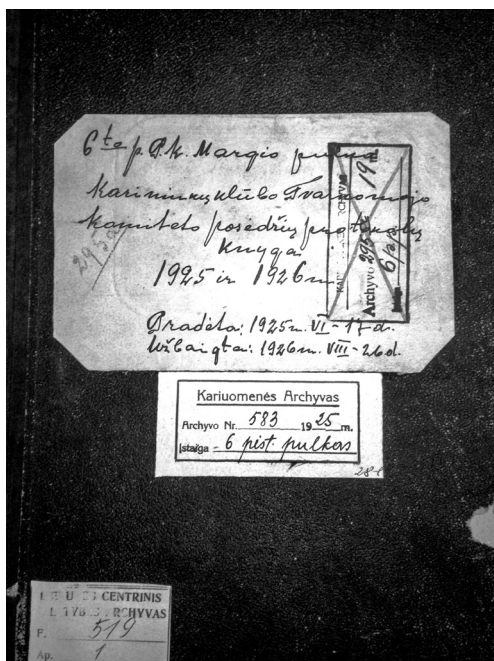 6te p. P.k. Margio pulko
Karininkų klubo Tvarkomojo
Komiteto posėdžių protokolų
Knyga
1925 ir 1926 m.
Pradėta: 1925 m. VI - 17 d.
Užbaigta: 1926 m. VIII - 26 d.
Archyvo
19
Kariuomenės Archyvas
Archyvo Nr. 583 1925 m.
Įstaiga - 6 pėst. pulkas
CENTRINIS
F. 519
Ap. 1